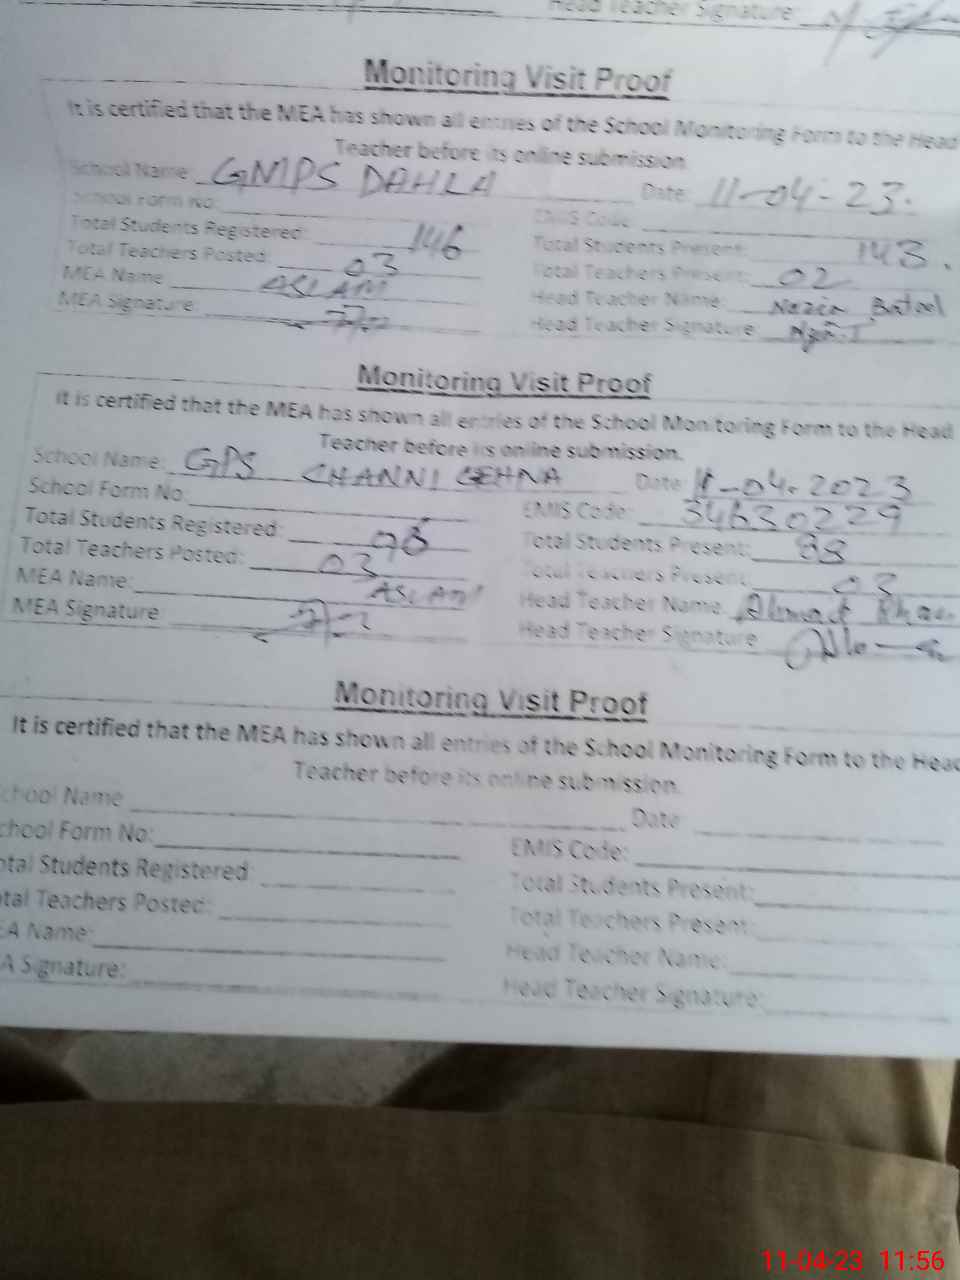 Head Teacher Signature:
Monitoring Visit Proof
It is certified that the MEA has shown all entries of the School Monitoring Form to the Head
Teacher before its online submission.
School Name GMPS DAHLA Date 11-04-23.
School Form No: EMIS Code
Total Students Registered: 146 Total Students Present: 143.
Total Teachers Posted: 03 Total Teachers Present: 02
MEA Name ASLAM Head Teacher Name: Nazia Batool
MEA Signature: Head Teacher Signature
Monitoring Visit Proof
It is certified that the MEA has shown all entries of the School Monitoring Form to the Head
Teacher before its online submission.
School Name: GPS CHANNI GEHNA Date 11-04-2023
School Form No: EMIS Code: 34630229
Total Students Registered: Total Students Present: 88
Total Teachers Posted: 03 Total Teachers Present: 03
MEA Name: ASLAM Head Teacher Name. Ahmad
MEA Signature Head Teacher Signature
Monitoring Visit Proof
It is certified that the MEA has shown all entries of the School Monitoring Form to the Head
Teacher before its online submission.
chool Name Date
chool Form No: EMIS Code:
otal Students Registered Total Students Present:
otal Teachers Posted: Total Teachers Present:
EA Name: Head Teacher Name:
A Signature: Head Teacher Signature:
11-04-23 11:56